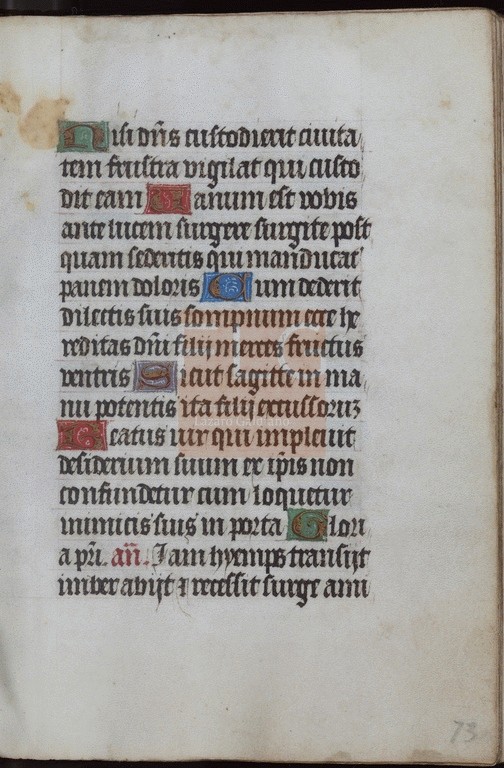 Nisi dn̄s custodierit ciuita
tem frustra vigilat qui custo
dit eam Uanum est vobis
ante lucem surgere surgite post
quam sederitis qui manducat'
panem doloris Cum dederit
dilectis suis sompnum ecce he
reditas dn̄i filij merces fructus
ventris Sicut sagitte in ma
nu potentis ita filij excussoruʒ
Beatus uir qui impleuit
desiderium suum ex ip̄is non
confundetur cum loquetur
inimicis suis in porta Glori
a pr̄i. an̄. Iam hyemps transijt
imber abijt ⁊ recessit surge ami
Lázaro Galdiano
73